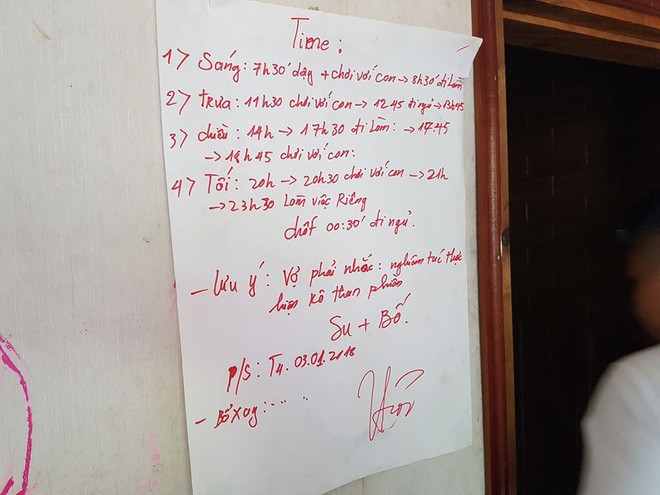 Time:
1> Sáng: 7h30' dạy + chơi với con → 8h30' đi làm
2> trưa: 11h30 chơi với con → 12 45 đi ngủ → 13h45
3> chiều: 14h → 17h30 đi làm: → 17.45
→ 18h45 chơi với con:
4> Tối: 20h → 20h30 chơi với con → 21h
→ 23h30 Làm việc Riêng
chốt 00:30' đi ngủ.
- Lưu ý: Vợ phải nhắc: nghiêm túc thực
hiện kô than phiền
Su + Bố.
P/S: T4. 03.01.2018